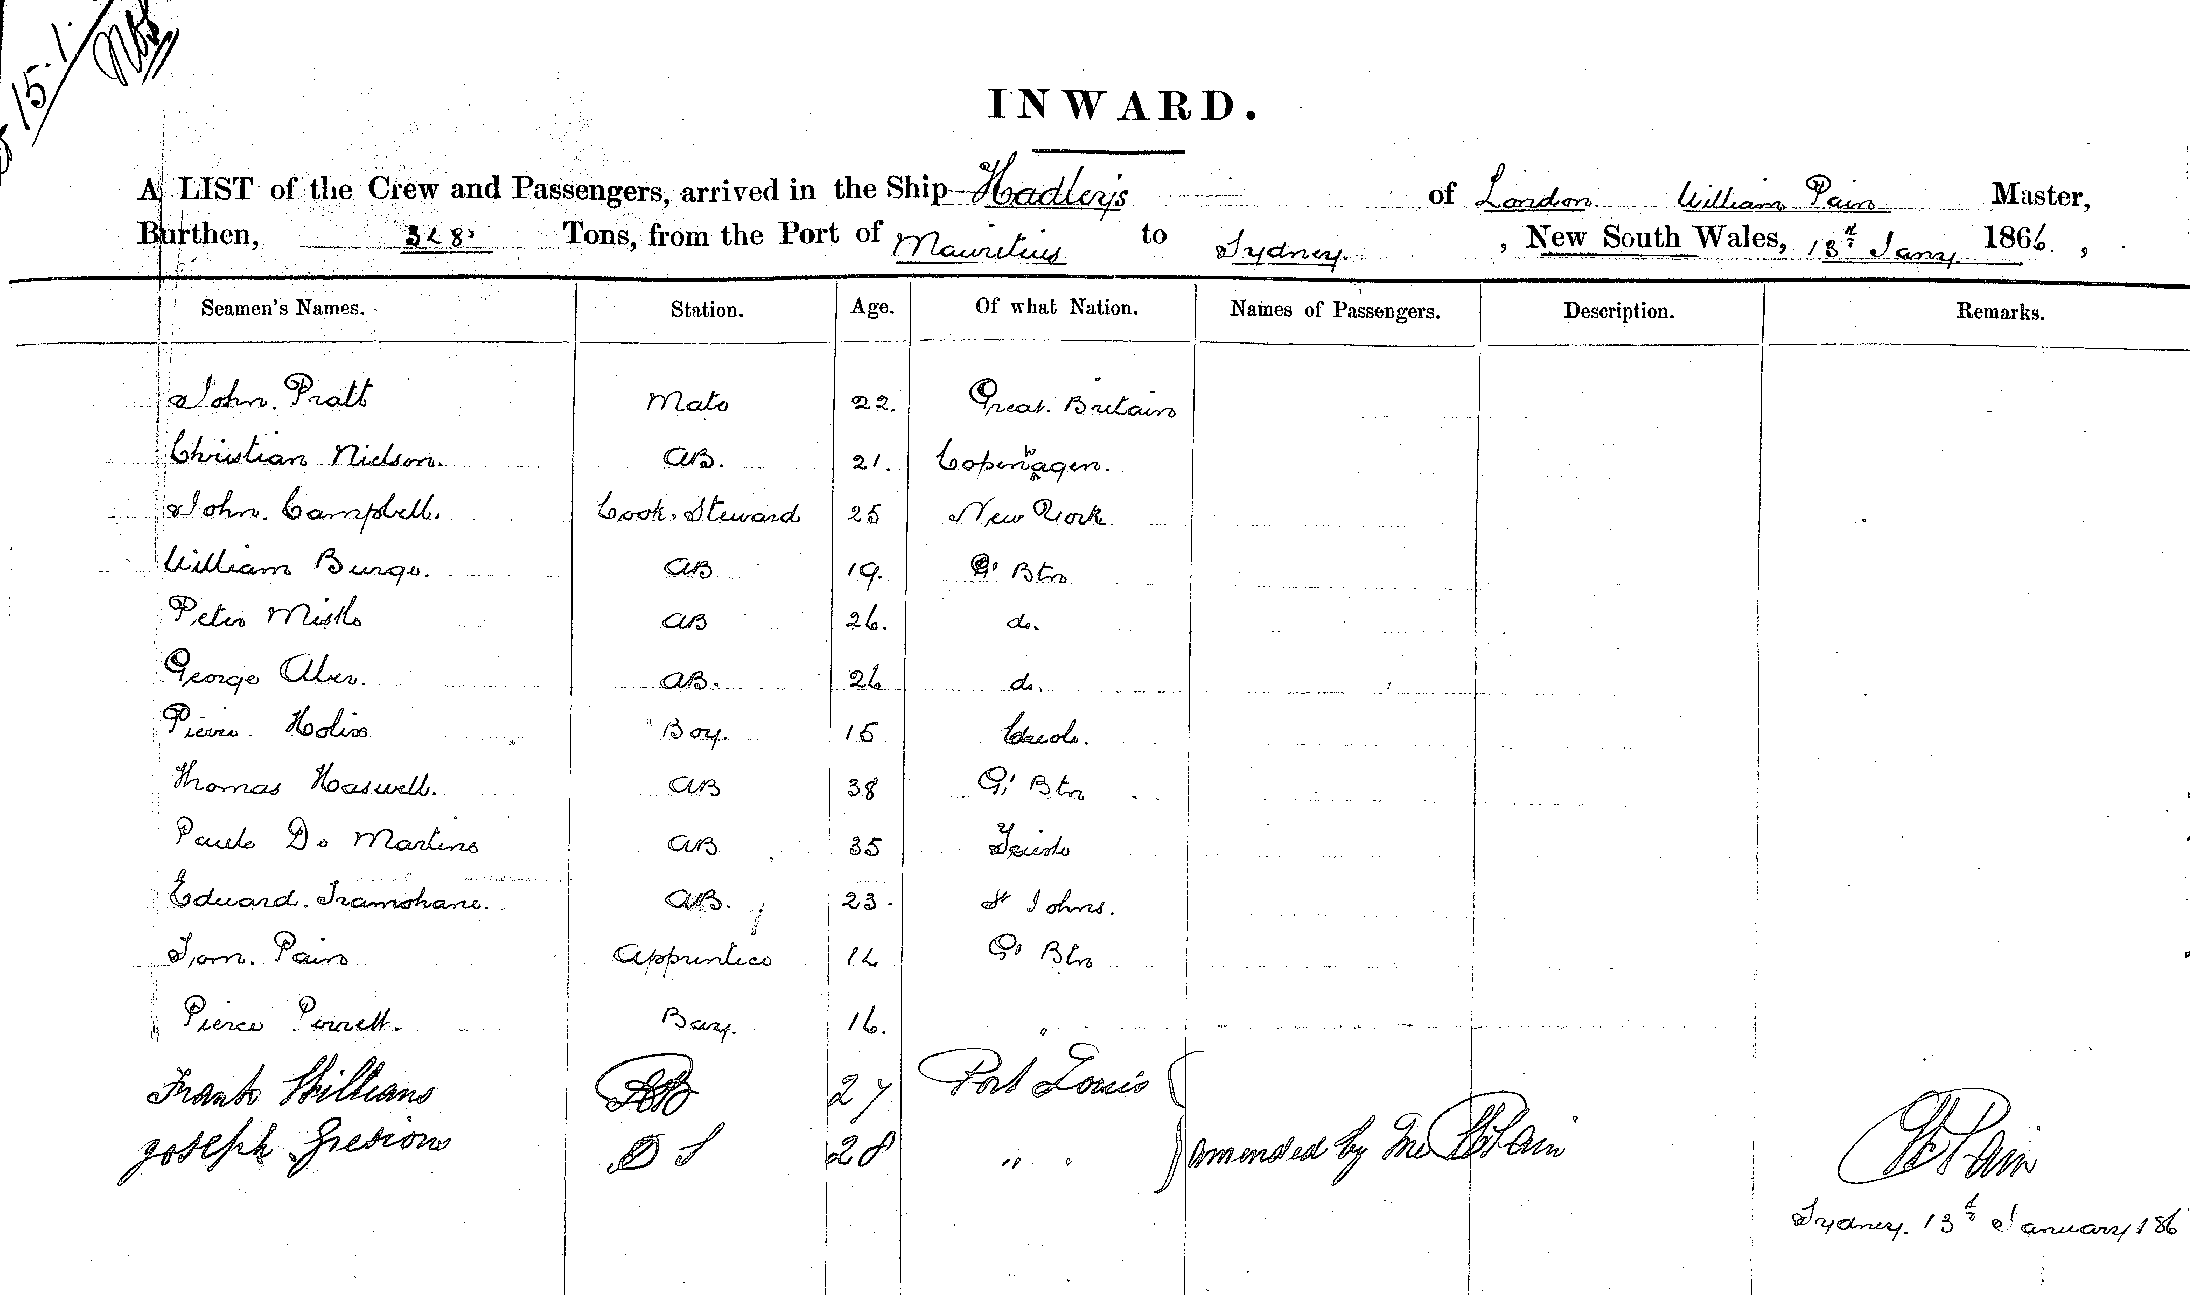 15.1
INWARD.
A LIST of the Crew and Passengers, arrived in the Ship Hadley's of London William Pain Master,
Burthen, 328 Tons, from the Port of Mauritius to Sydney , New South Wales, 13th Jany 1866 ,
Seamen's Names. Station. Age. Of what Nation. Names of Passengers. Description. Remarks.
John. Pratt Mate 22. Great. Britain
Christian Nielson. AB. 21. Copenhagen.
John. Campbell. Cook. Steward 25 New York
William Burge. AB 19. Gt Btn
Peter AB 26. do.
George AB. 26 do.
Pierre Boy. 15 Creole.
Thomas Haswell. AB 38 Gt Btn
Paulo De Martino AB 35 Trieste
Edward. AB. 23. St Johns.
Tom. Pain Apprentice 14 Gt Btn
Pierce Perrett. Boy. 16. "
Frank Williams AB 27 Port Louis
Joseph OS 28 " "
amended by me W Pain
W Pain
Sydney. 13th January 186